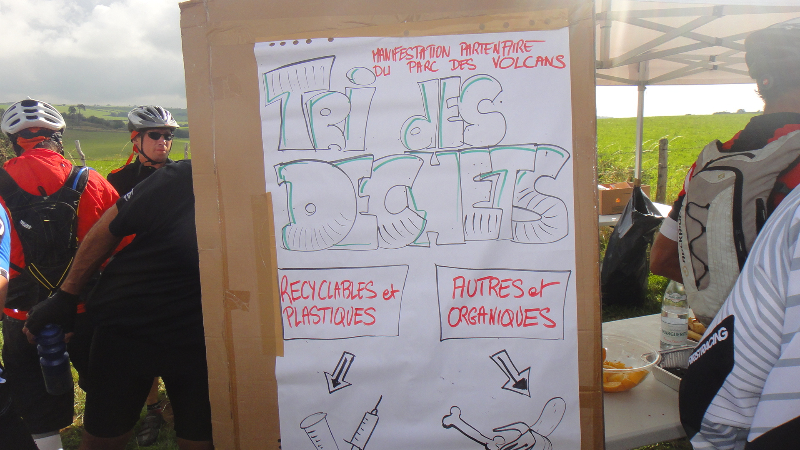 MANIFESTATION PARTENAIRE
DU PARC DES VOLCANS
TRi dES
DECJETS
RECYCLABLES et
PLASTIQUES
AUTRES et
ORGANIQUES